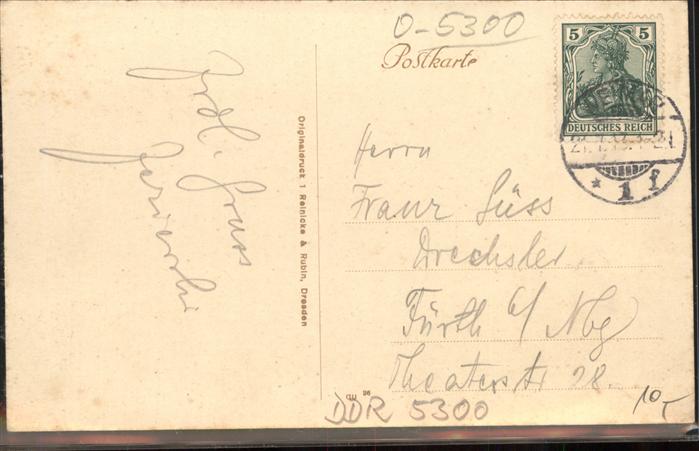 O-5300
Postkarte
5 5
DEUTSCHES REICH
* 1 f
Frdl. Gruss
Originaldruck 1 Reinicke & Rubin, Dresden
Herrn
Franz Süss
Drechsler
Fürth b/ Nbg
Theaterstr 28.
DDR 5300
10,-